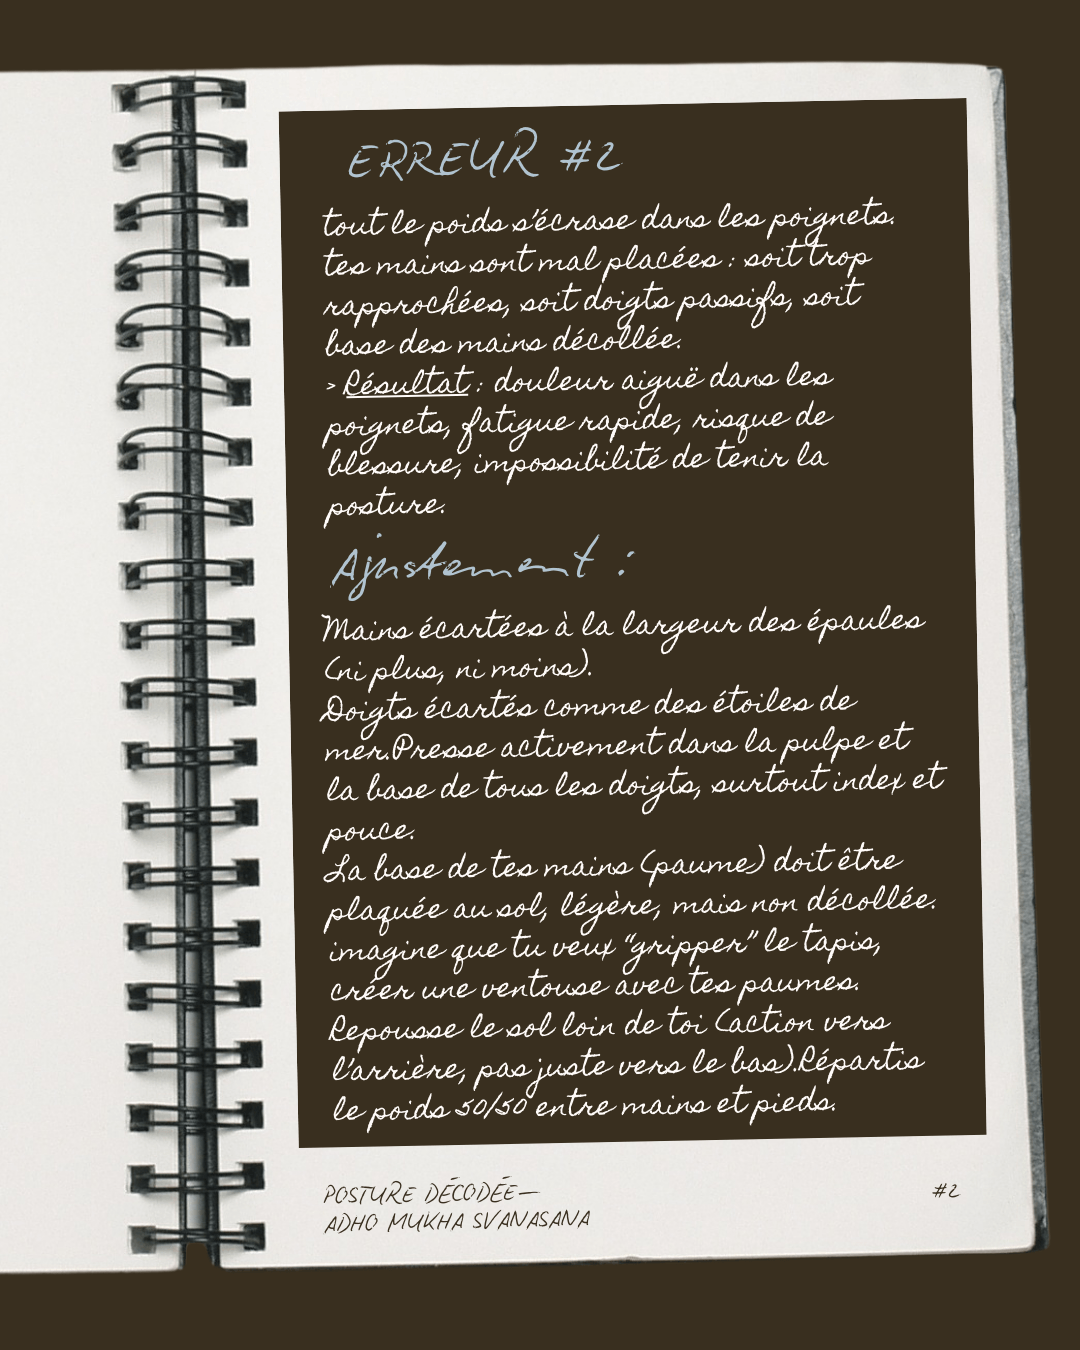 ERREUR #2
tout le poids s'écrase dans les poignets.
tes mains sont mal placées : soit trop
rapprochées, soit doigts passifs, soit
base des mains décollée.
> Résultat : douleur aiguë dans les
poignets, fatigue rapide, risque de
blessure, impossibilité de tenir la
posture.
Ajustement :
Mains écartées à la largeur des épaules
(ni plus, ni moins).
Doigts écartés comme des étoiles de
mer.Presse activement dans la pulpe et
la base de tous les doigts, surtout index et
pouce.
La base de tes mains (paume) doit être
plaquée au sol, légère, mais non décollée.
imagine que tu veux “gripper” le tapis,
créer une ventouse avec tes paumes.
Repousse le sol loin de toi (action vers
l'arrière, pas juste vers le bas).Répartis
le poids 50/50 entre mains et pieds.
POSTURE DÉCODÉE—
ADHO MUKHA SVANASANA
#2